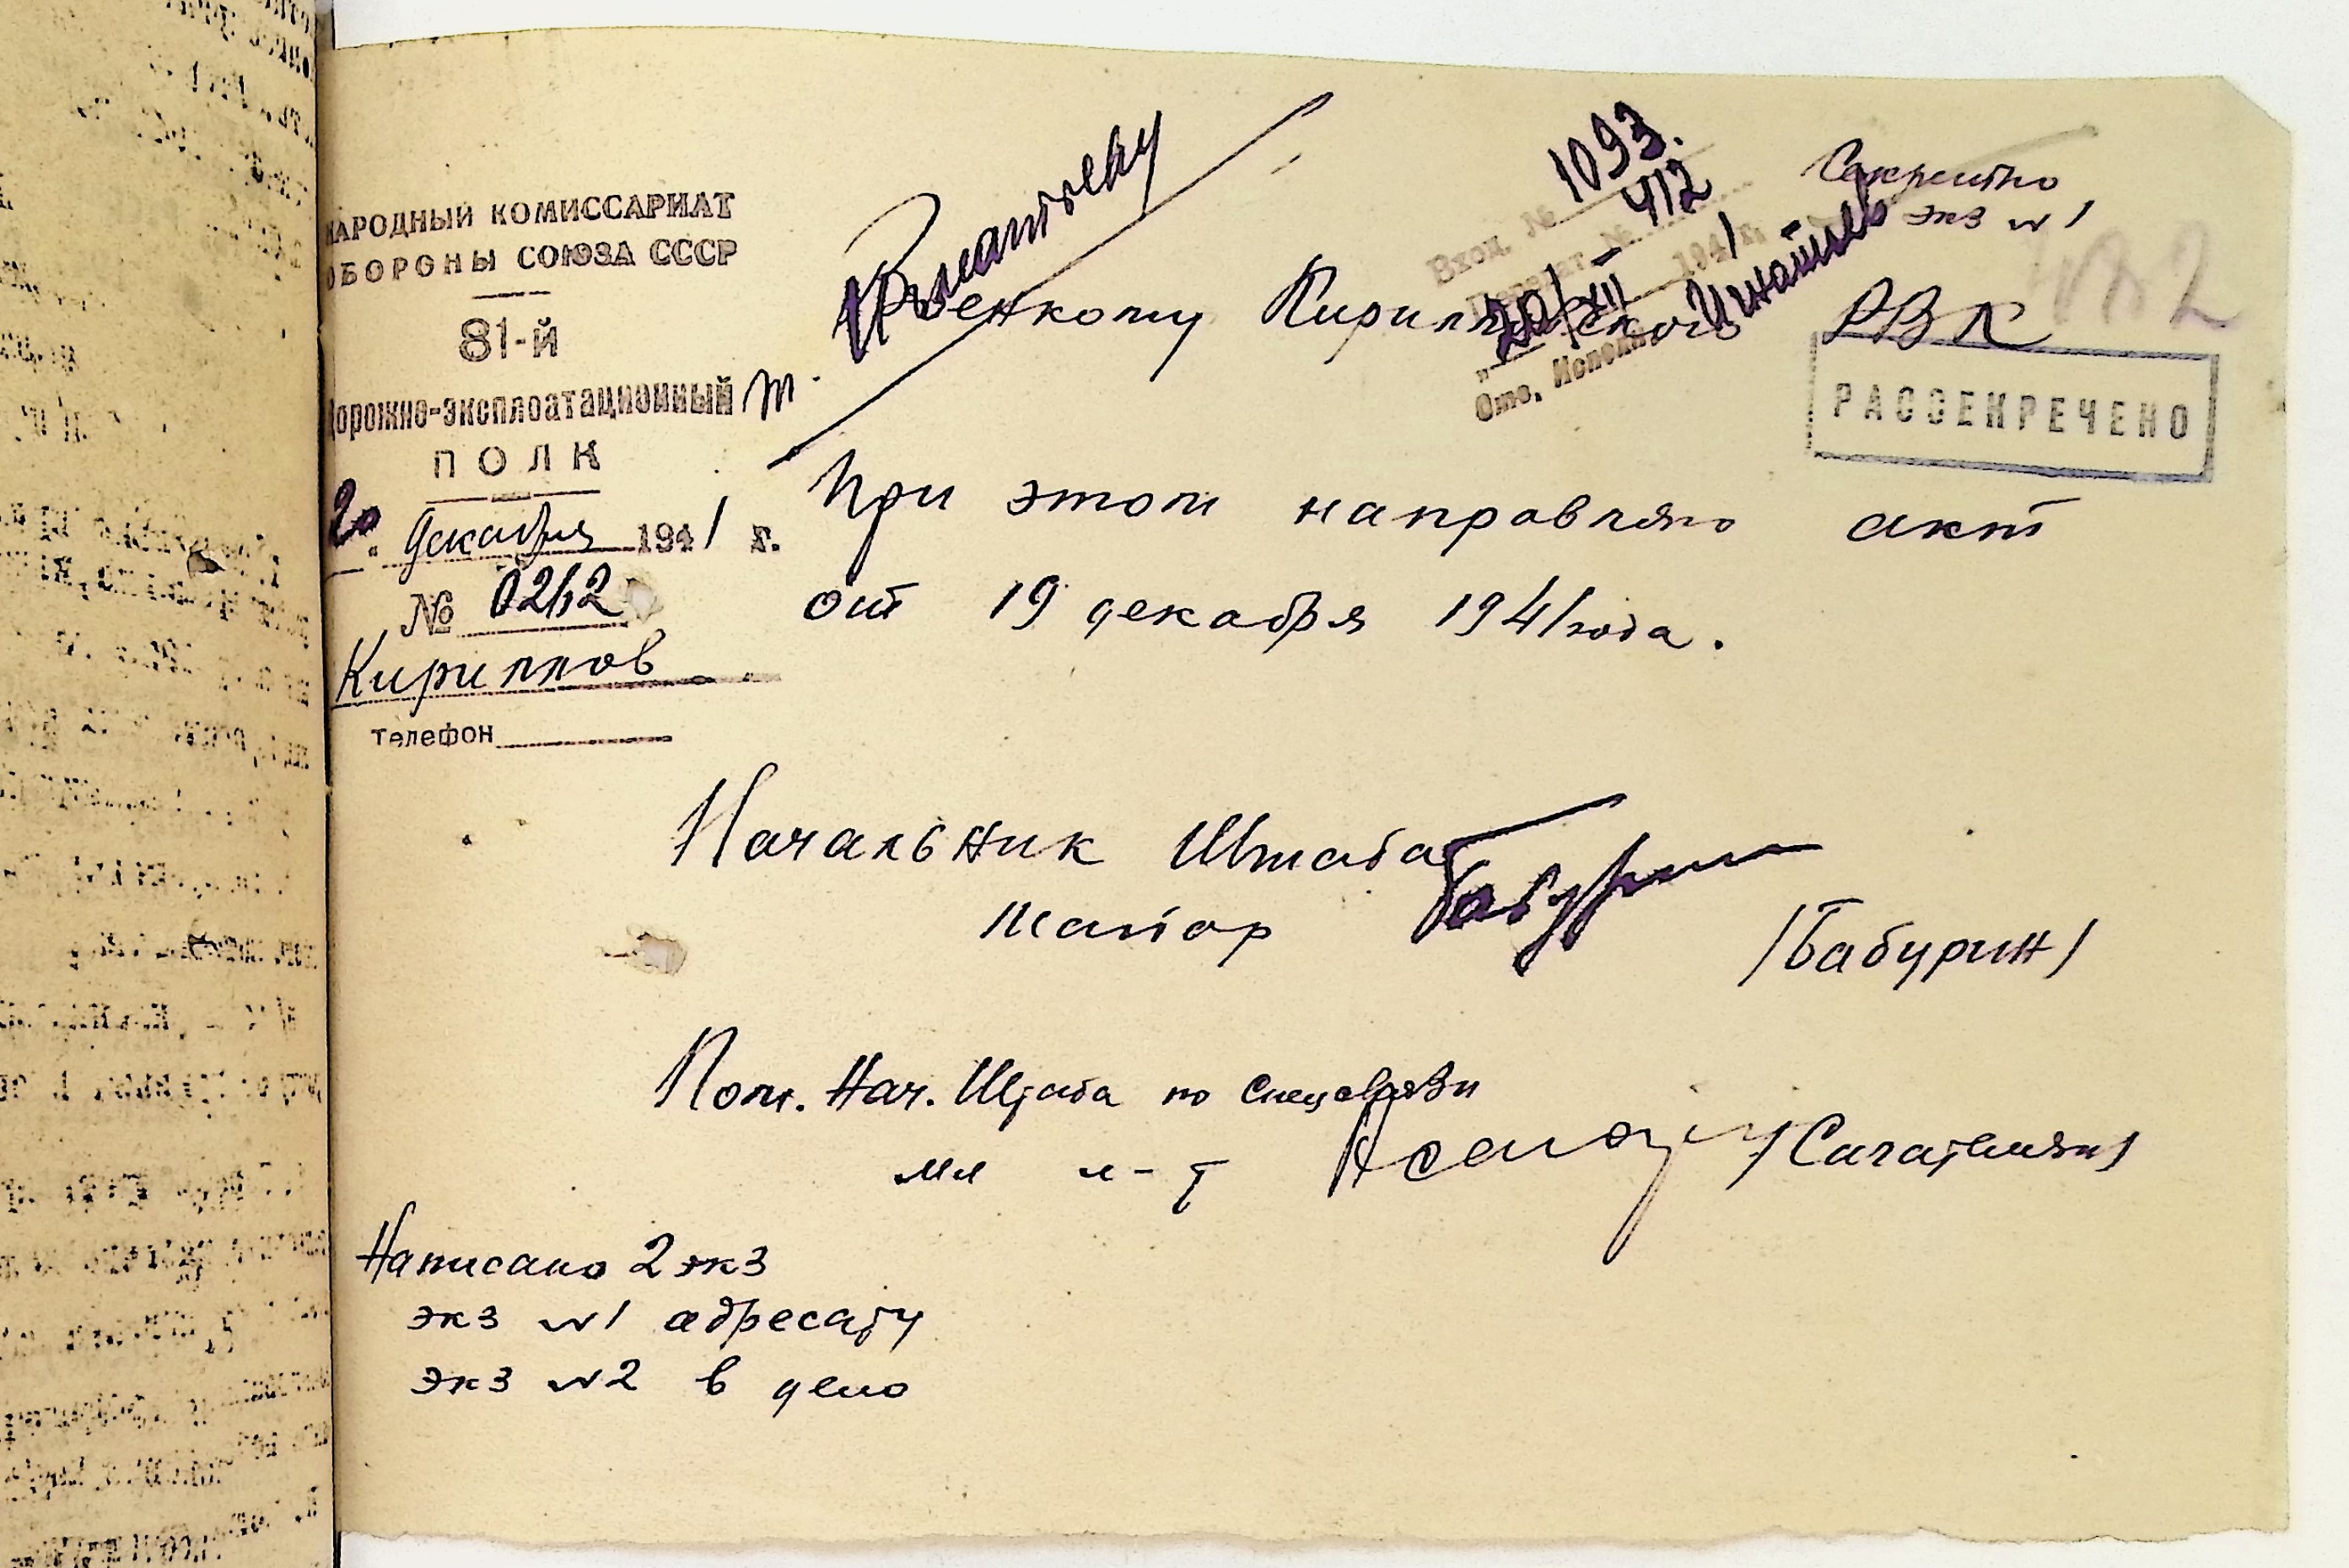 НАРОДНЫЙ КОМИССАРИАТ
ОБОРОНЫ СОЮЗА СССР
81-й
Дорожно-эксплоатационный
ПОЛК
20 декабря 1941 г.
№ 0212
Кириллов
телефон
Секретно
экз № 1
1093.
412
Вход. №
20/XII 1941 г.
Отв. Исполн.
Игнатьев
Военкому Кирилловского РВК
РАССЕКРЕЧЕНО
При этом направляю акт
от 19 декабря 1941 года.
Начальник Штаба
Майор /Бабурин/
Пом. Нач. Штаба по Спецсвязи
мл л-т
Написано 2 экз
экз №1 адресату
экз №2 в дело